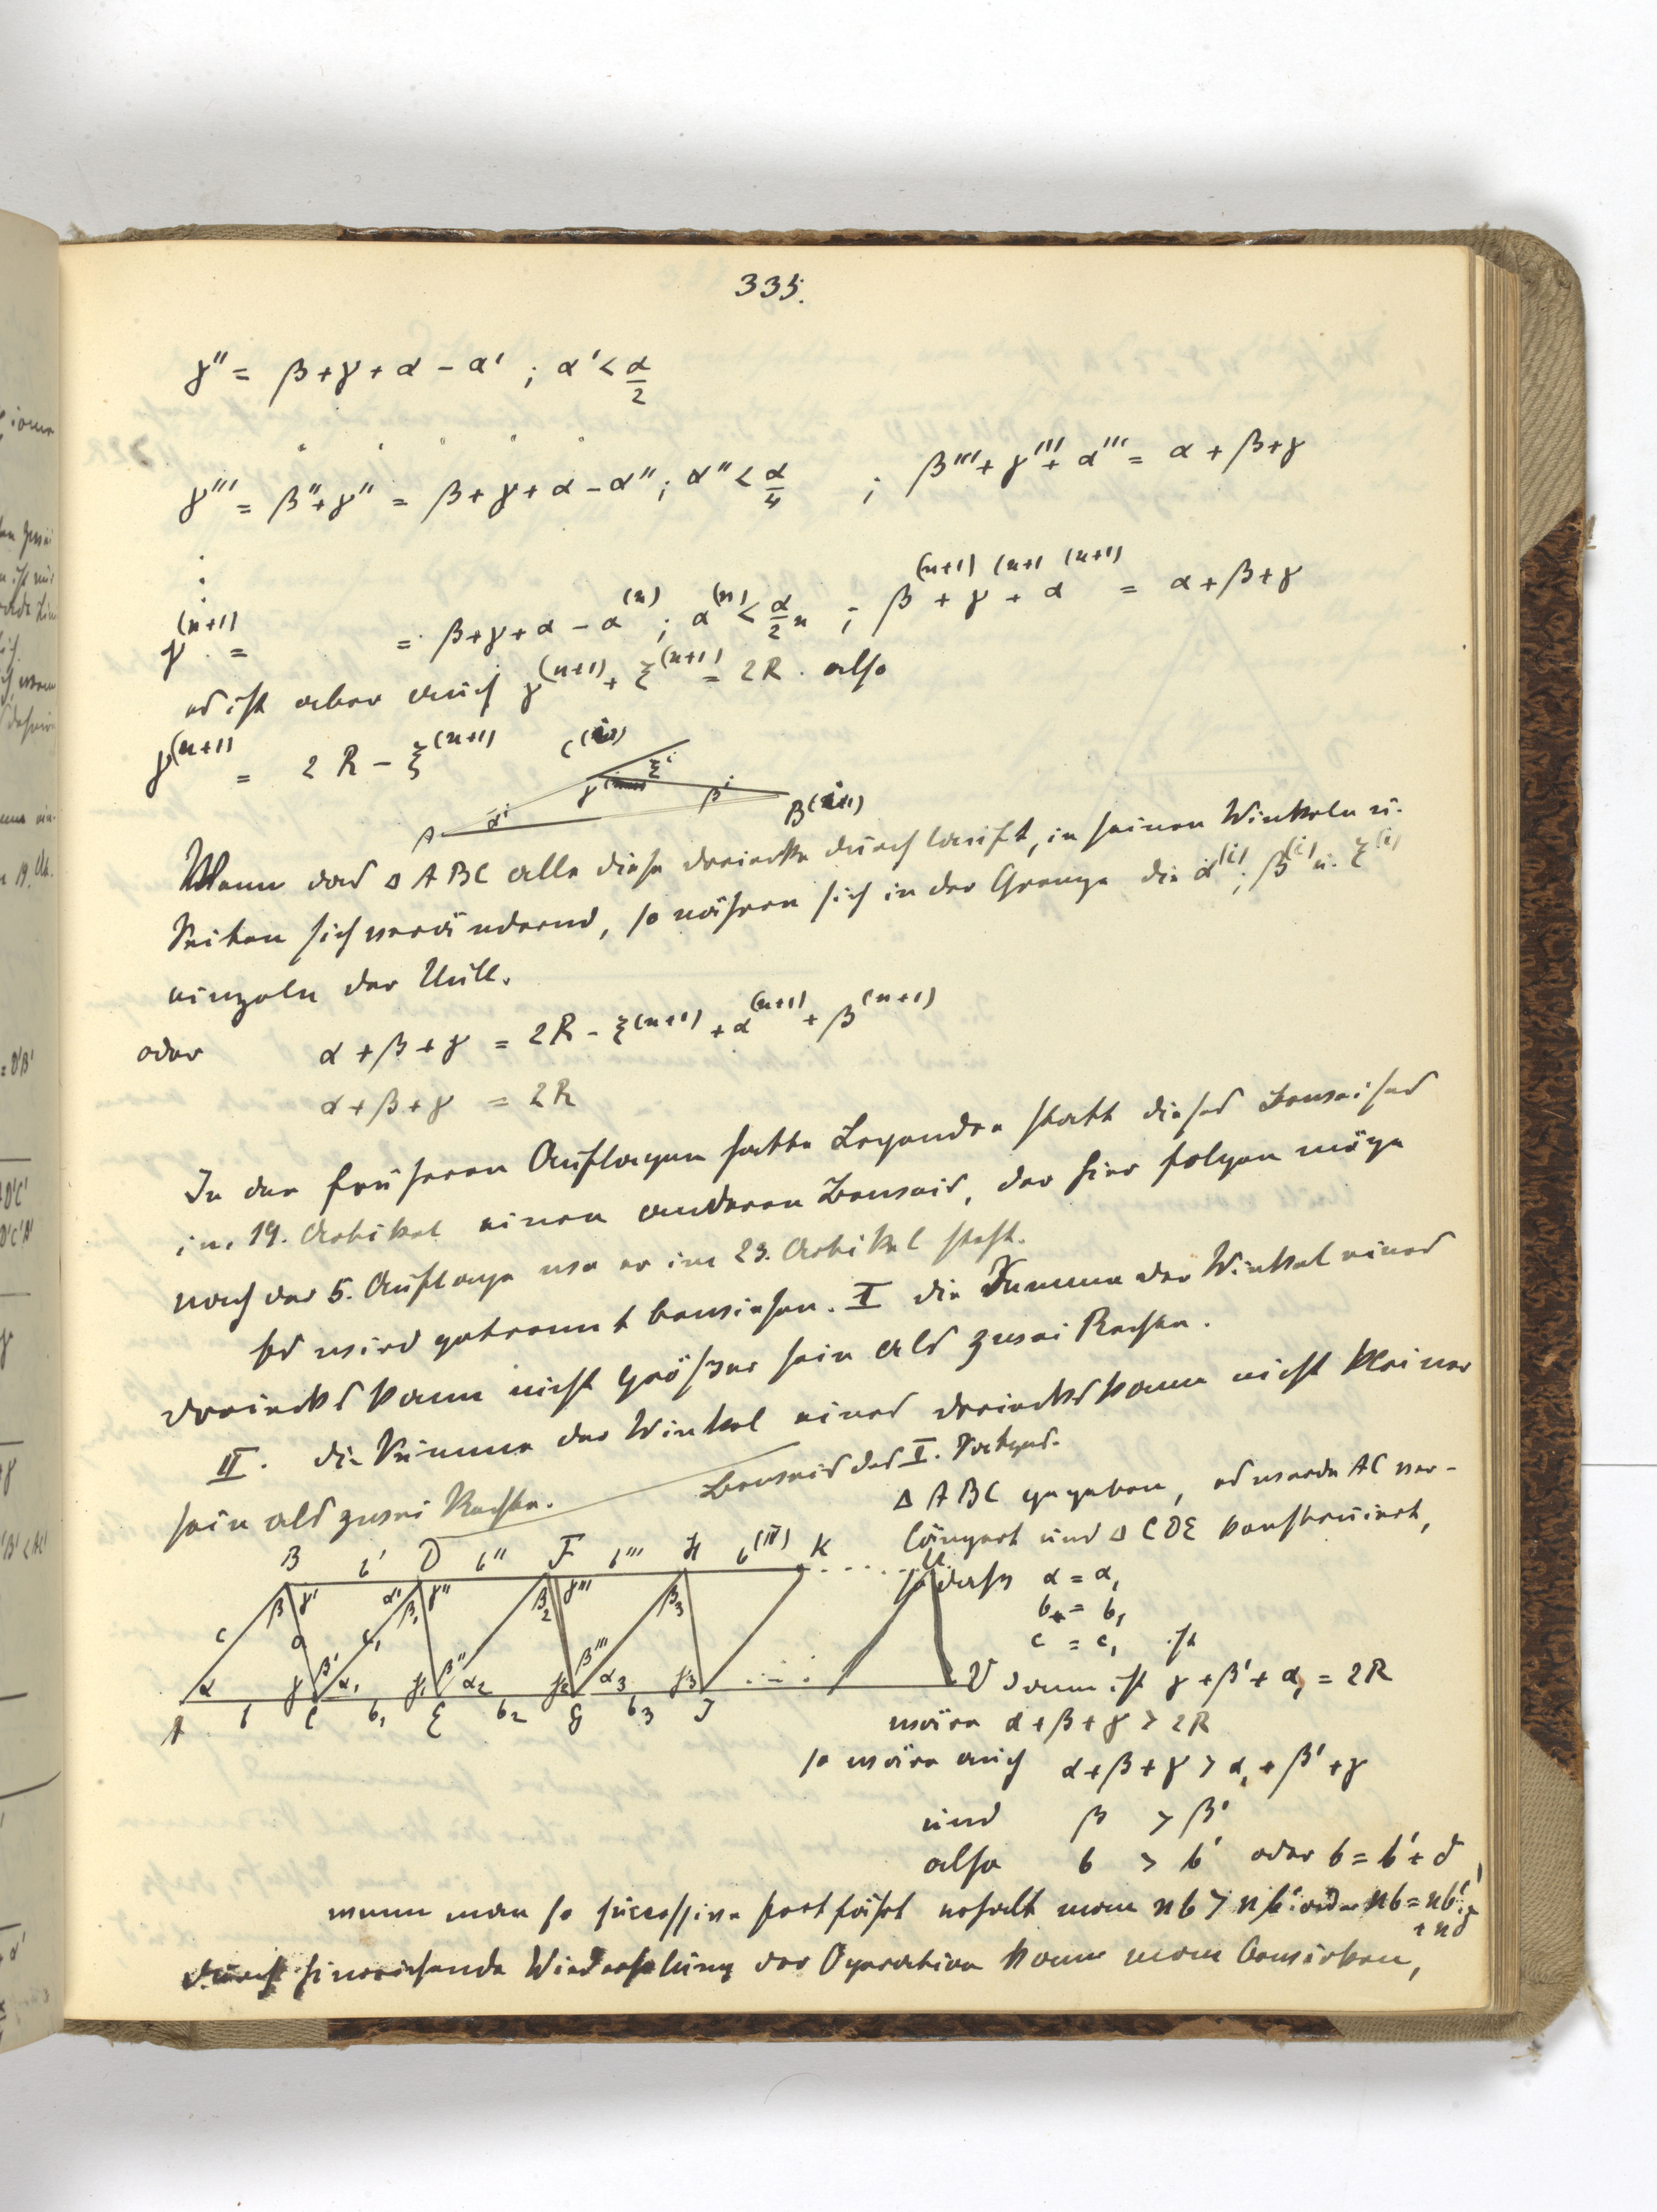 335.
γ'' = β+γ+α − α' ; α' < α/2
γ''' = β''+γ'' = β+γ+α − α'' ; α'' < α/4 ; β'''+γ'''+α''' = α+β+γ
γ^(n+1) = = β+γ+α − α^(n) ; α^(n) < α/2^n ; β^(n+1) + γ^(n+1) + α^(n+1) = α+β+γ
es ist aber auch γ^(n+1) + ξ^(n+1) = 2R. also
γ^(n+1) = 2R − ξ^(n+1)
A α^i γ C ξ^i β^i B
Wenn das Δ ABC alle diese Dreiecke durchläuft, in seinen Winkeln u.
Seiten sich verändernd, so nähern sich in der Grenze die α^(i), β^(i) u. ξ^(i)
einzeln der Null.
oder α+β+γ = 2R − ξ^(n+1) + α^(n+1) + β^(n+1)
α+β+γ = 2R
In den früheren Auflagen hatte Legendre statt dieses Beweises
im 19. Artikel einen anderen Beweis, der hier folgen möge
nach der 5. Auflage wo er im 23. Artikel steht.
Es wird getrennt bewiesen. I die Summe der Winkel eines
Dreiecks kann nicht größer sein als zwei Rechte.
II. die Summe der Winkel eines Dreiecks kann nicht kleiner
sein als zwei Rechte.
Beweis des I. Satzes.
Δ ABC gegeben, es werde AC ver-
längert und Δ CDE konstruiert,
so dass α = α₁
b = b₁
c = c₁ ist
B b' D b'' F b''' H b^(IV) K
β γ' α' β₁ γ'' β₂ γ''' β₃
c a c₁
α γ β' α₁ γ₁ β'' α₂ γ₂ β''' α₃ γ₃
A b C b₁ E b₂ G b₃ J V
dann ist γ+β'+α₁ = 2R
wäre α+β+γ > 2R
so wäre auch α+β+γ > α₁+β'+γ
und β > β'
also b > b' oder b = b'+δ,
wenn man so successive fortfährt erhält man nb > nb' oder nb = nb'
+ nδ
durch hinreichende Wiederholung der Operation kann man bewirken,